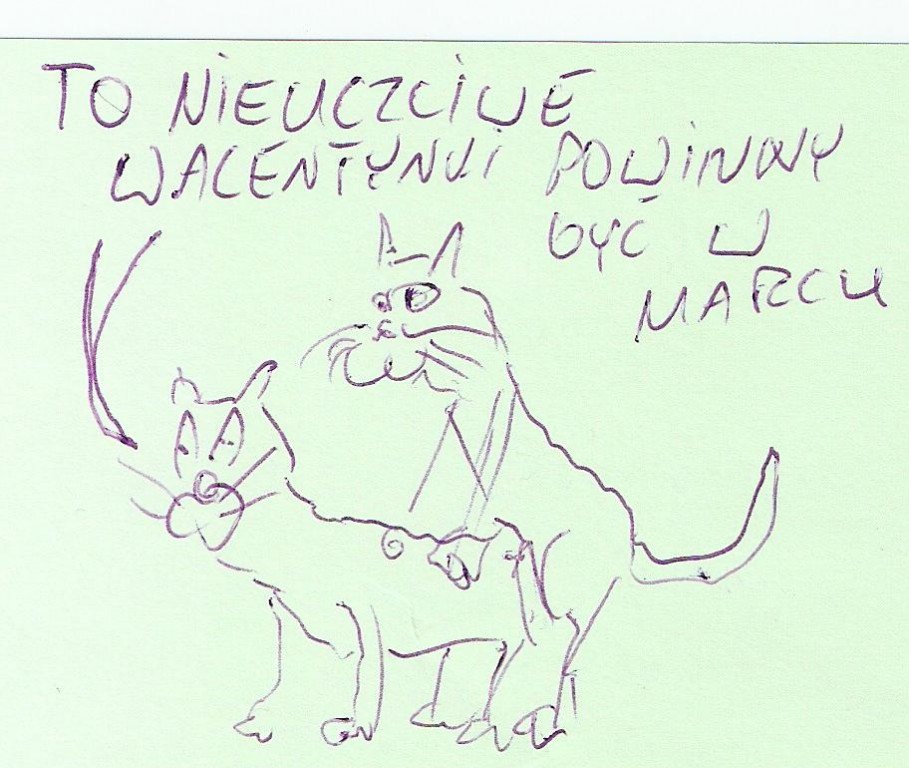 TO NIEUCZCIWE
WALENTYNKI POWINNY
BYĆ W
MARCU